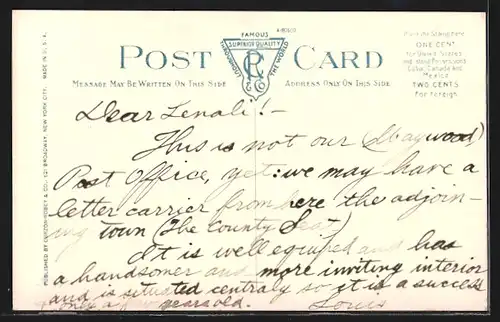 A-85636
FAMOUS
SUPERIOR QUALITY
THROUGHOUT THE WORLD
POST CARD
MESSAGE MAY BE WRITTEN ON THIS SIDE
ADDRESS ONLY ON THIS SIDE
ONE CENT
for United States
and Island Possessions
Cuba, Canada and
Mexico
TWO CENTS
for Foreign
MADE IN U. S. A.
PUBLISHED BY 621 BROADWAY, NEW YORK CITY.
Dear Lenali! –
This is not our (Maywood)
Post Office, yet: we may have a
letter carrier from here the adjoin-
ing town (The County Seat)
It is well equiped and has
a handsomer and more inviting interior
and is situated centraly so it is a success
only a few years old. Louis